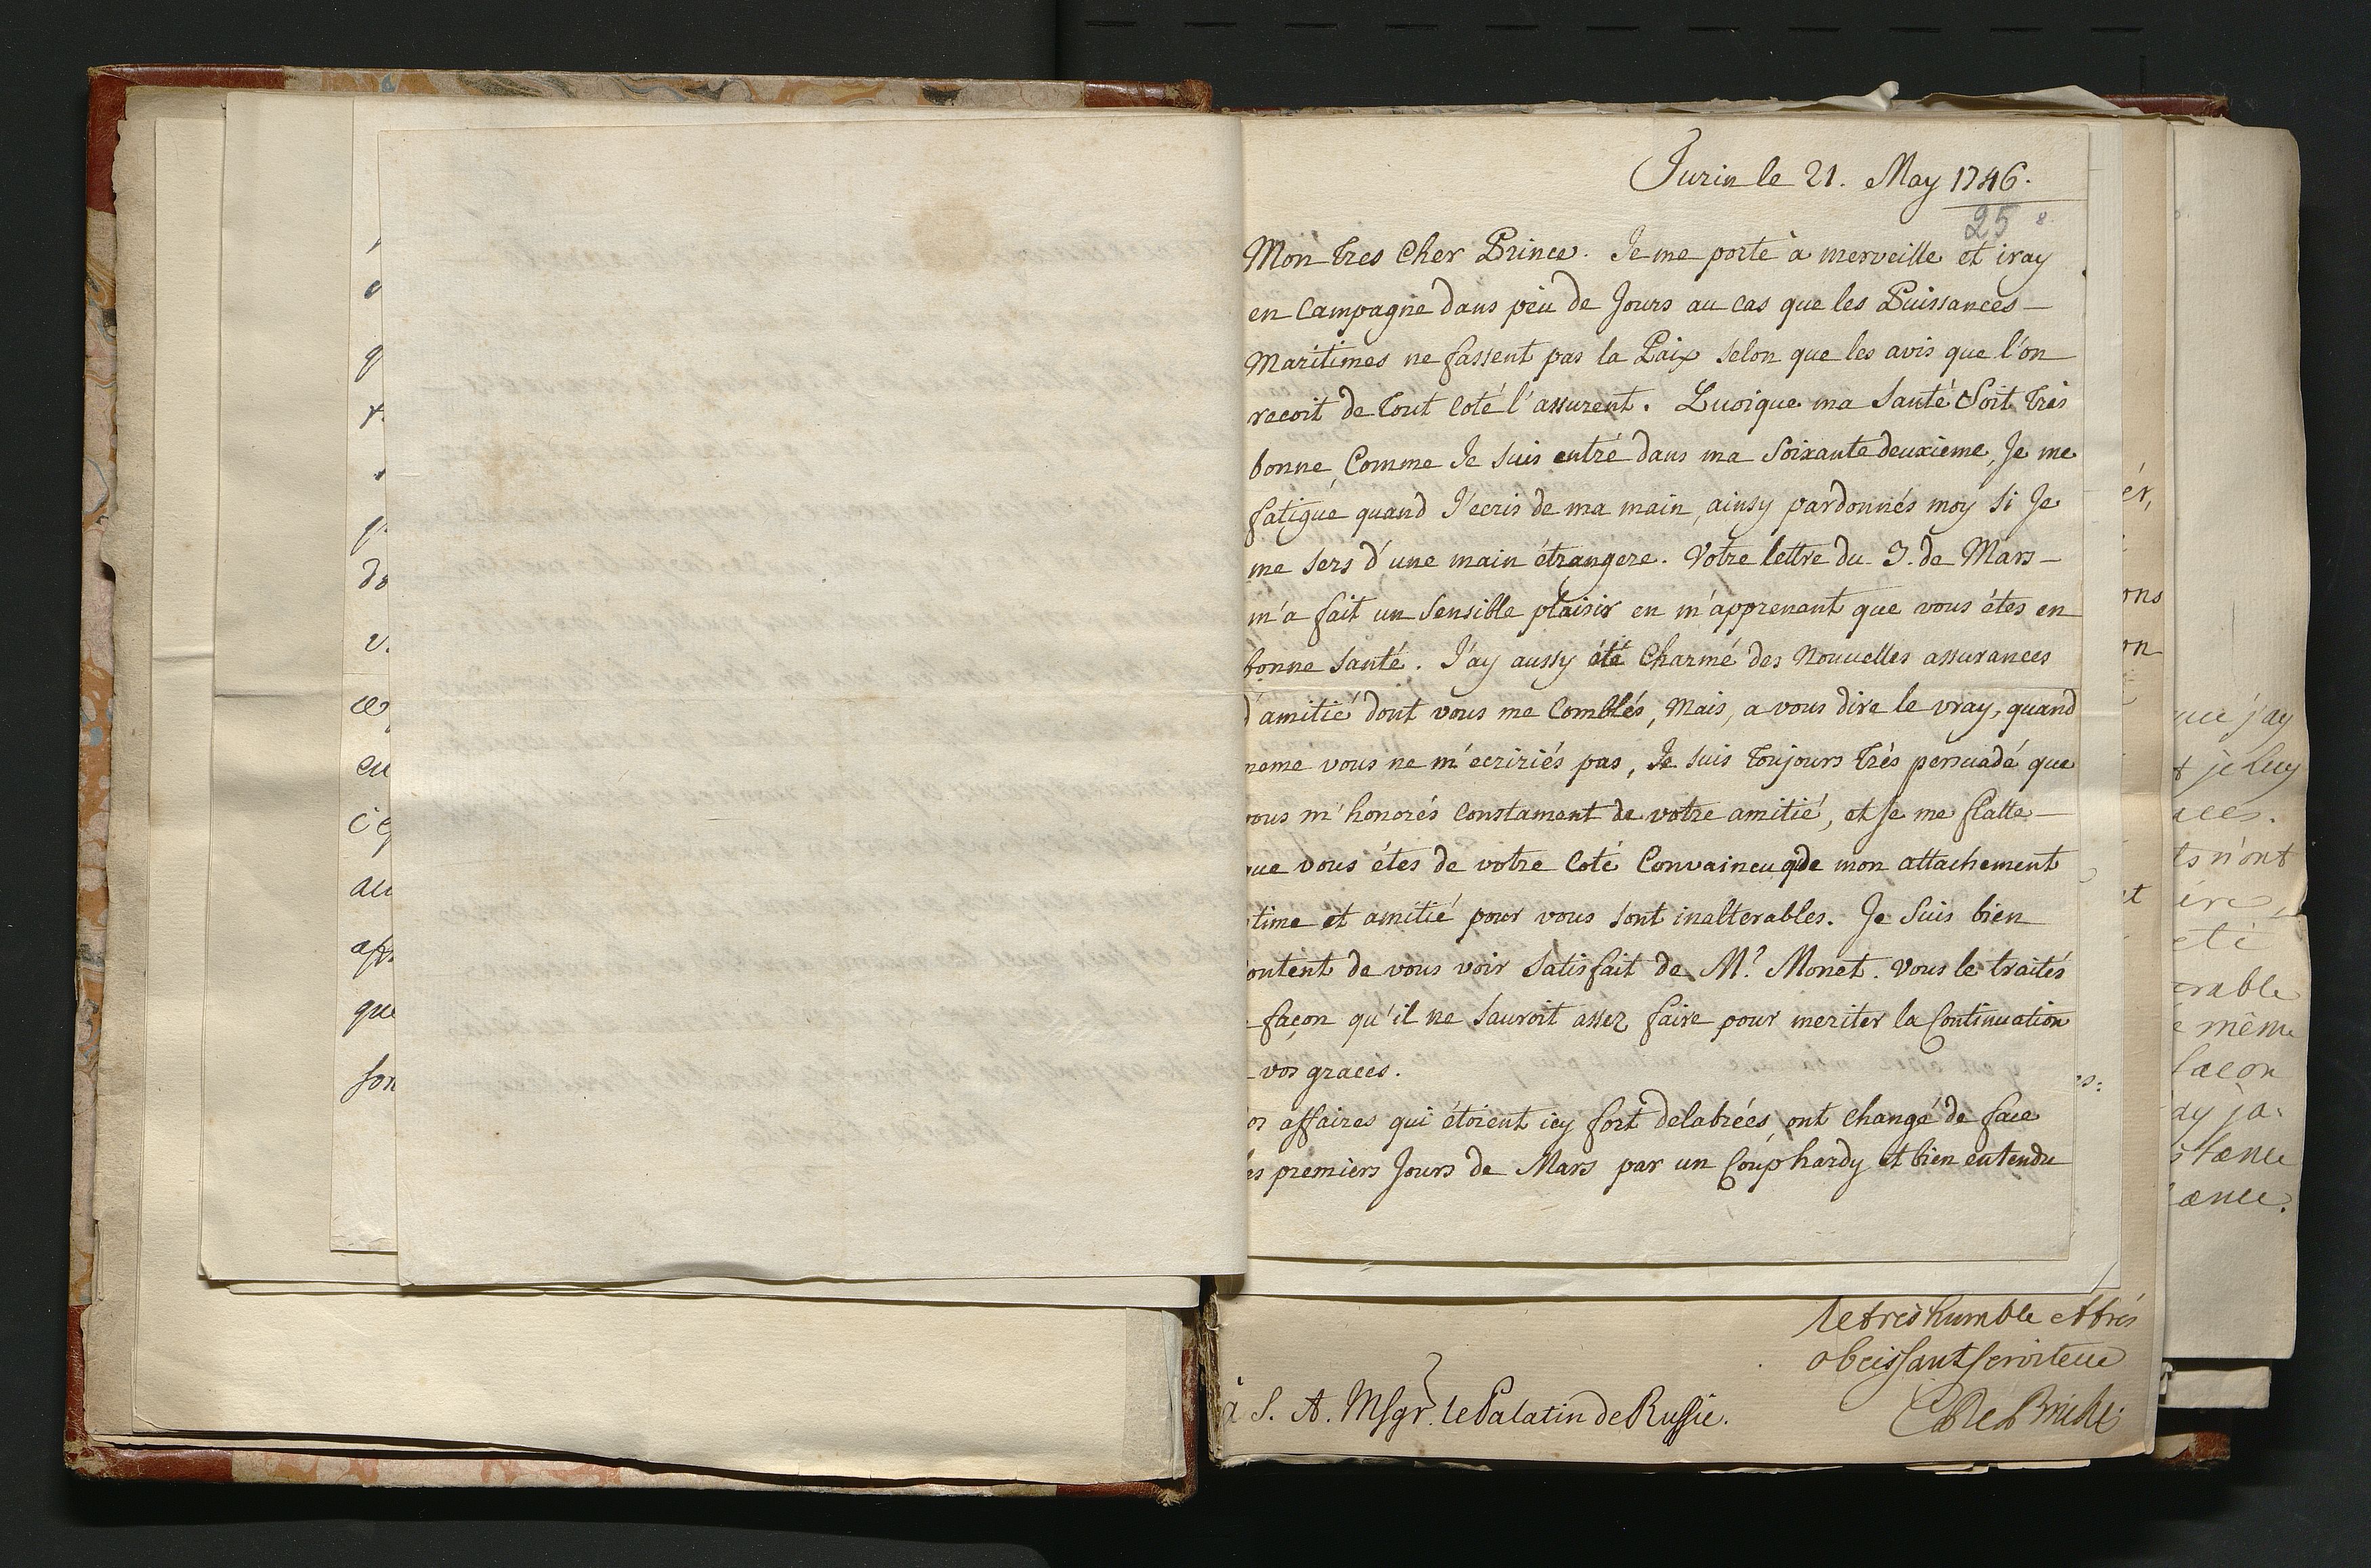 Turin le 21. May 1746.
25
Mon tres Cher Prince. Je me porte à merveille et iray
en Campagne dans peu de Jours au cas que les Puissances
Maritimes ne fassent pas la Paix selon que les avis que l'on
recoit de tout coté l'assurent. Quoique ma Santé Soit très
bonne, Comme Je suis entré dans ma Soixante deuxieme, Je me
fatigue quand J'ecris de ma main, ainsy pardonnés moy si Je
me sers d'une main étrangere. Votre lettre du 3. de Mars
m'a fait un Sensible plaisir en m'apprenant que vous étes en
bonne Santé. J'ay aussy été Charmé des Nouvelles assurances
d'amitié dont vous me Comblés, Mais, a vous dire le vray, quand
meme vous ne m'ecririés pas, Je suis toujours très persuadé que
vous m'honorés Constament de votre amitié, et Je me flatte
que vous étes de votre Coté Convaincu que mon attachement
time et amitié pour vous sont inalterables. Je Suis bien
ontent de vous voir Satisfait de Mr Monet. Vous le traités
façon qu'il ne Sauroit assez faire pour meriter la Continuation
vos graces.
os affaires qui étoient icy fort delabrées, ont changé de face
es premiers Jours de Mars par un Coup hardy et bien entendu
le très humble et très
obeissant serviteur
à S. A. Msgr. le Palatin de Russie.
do
v.
eu
au
que
son
er,
ons
on
t
j'ay
je luy
n'ont
eté
erable
même
facon
ay ja